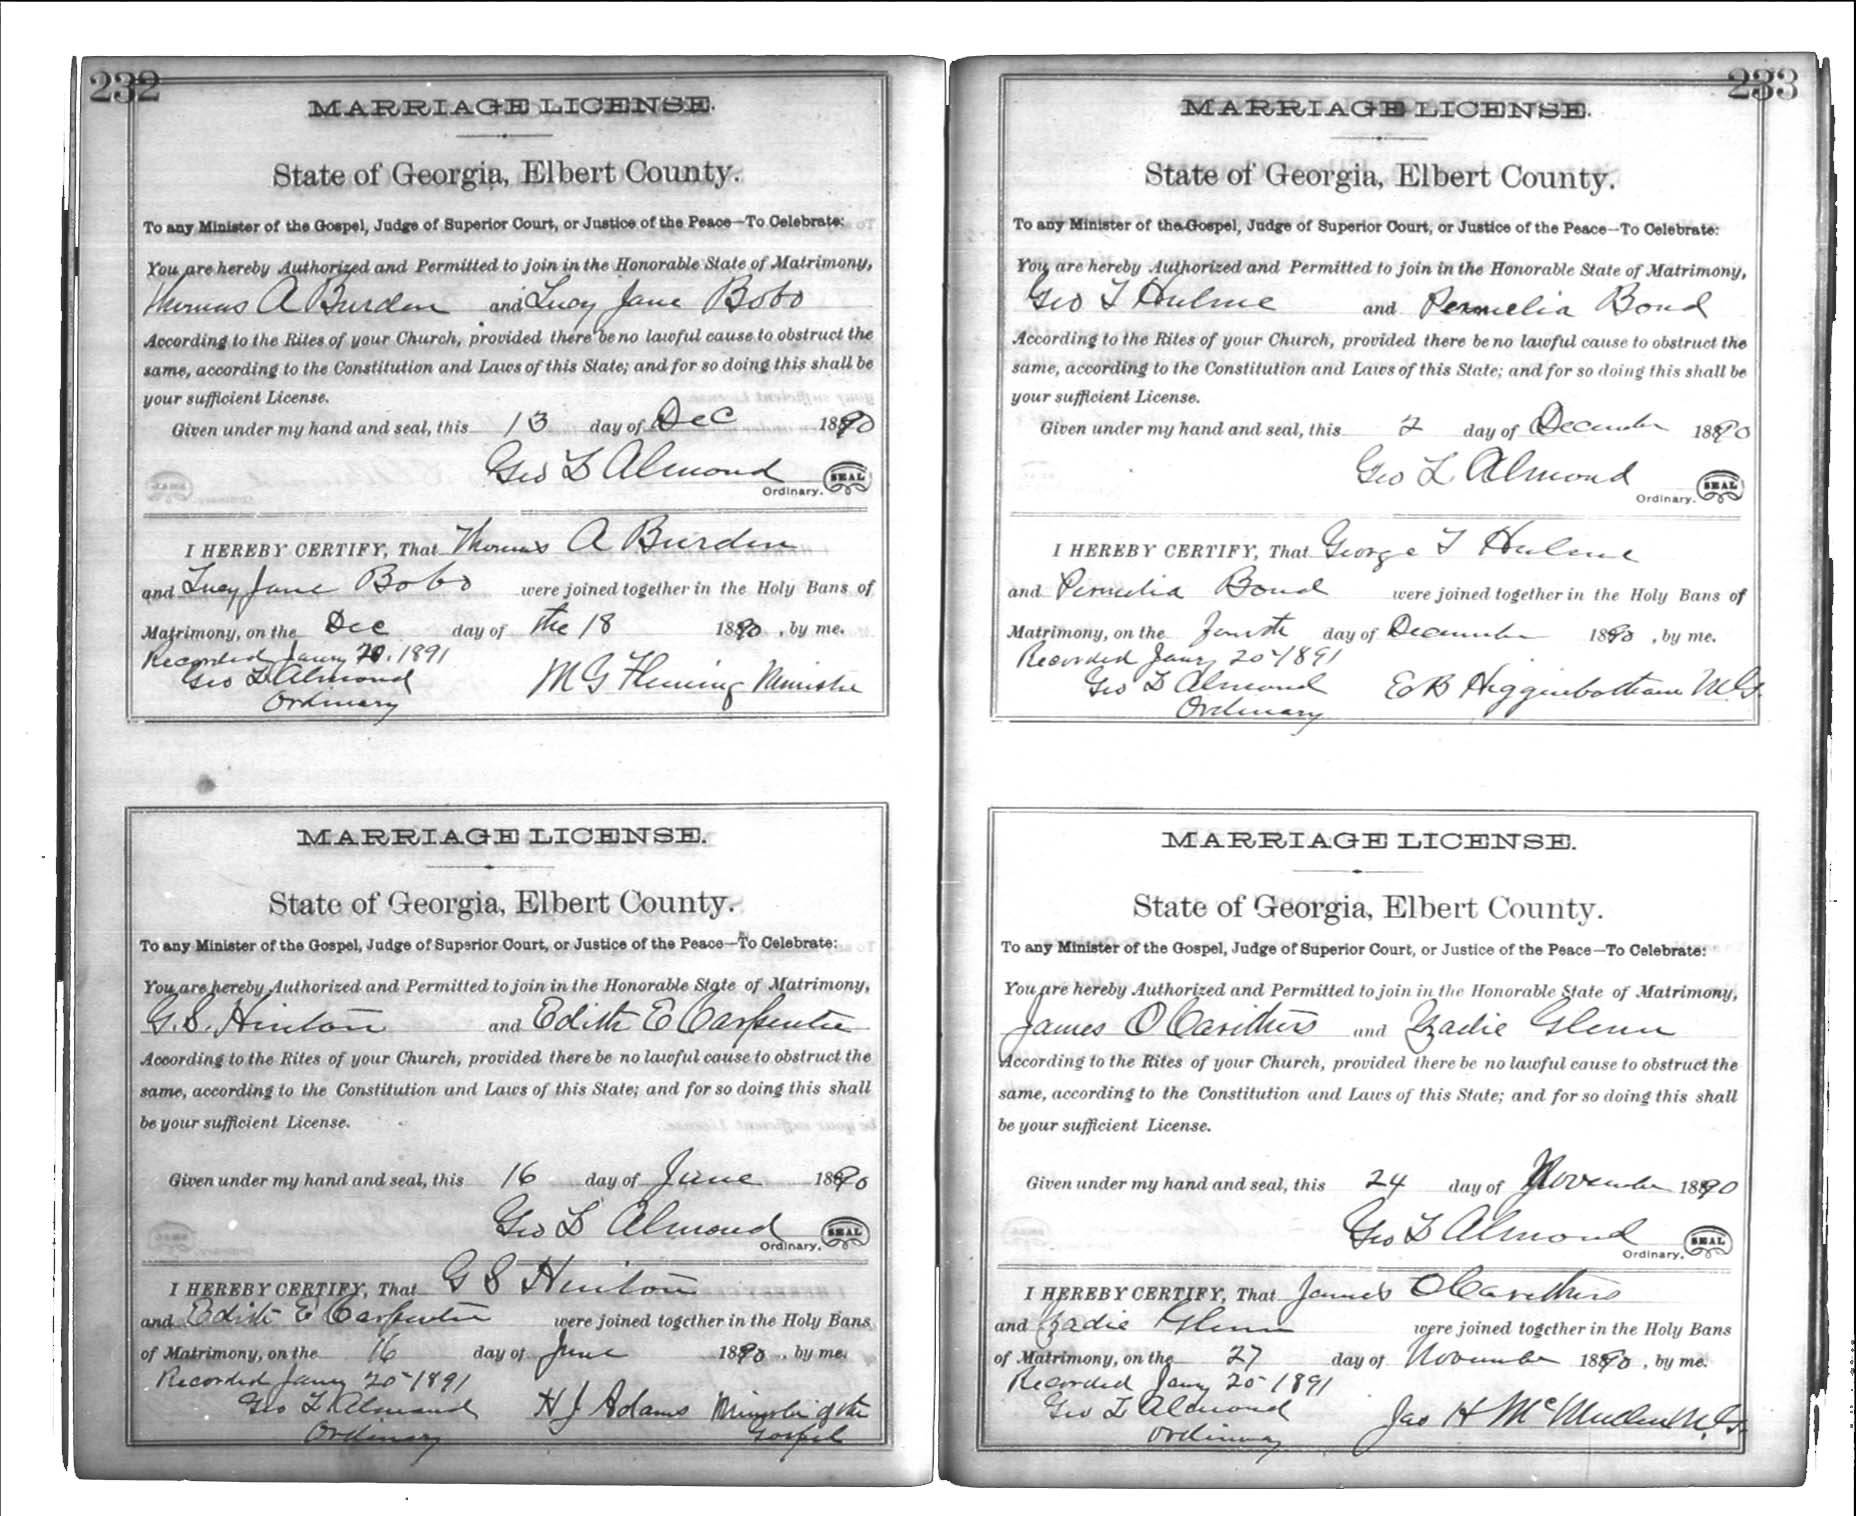 232
MARRIAGE LICENSE.
State of Georgia, Elbert County.
To any Minister of the Gospel, Judge of Superior Court, or Justice of the Peace—To Celebrate:
You are hereby Authorized and Permitted to join in the Honorable State of Matrimony,
Thomas A Burden and Lucy Jane Bobo
According to the Rites of your Church, provided there be no lawful cause to obstruct the
same, according to the Constitution and Laws of this State; and for so doing this shall be
your sufficient License.
Given under my hand and seal, this 13 day of Dec 1890
Geo L Almond SEAL
Ordinary.
I HEREBY CERTIFY, That Thomas A Burden
and Lucy Jane Bobo were joined together in the Holy Bans of
Matrimony, on the Dec day of the 18 1890, by me.
Recorded Jany 20, 1891
Geo L Almond M G Fleming Minister
Ordinary
MARRIAGE LICENSE.
State of Georgia, Elbert County.
To any Minister of the Gospel, Judge of Superior Court, or Justice of the Peace—To Celebrate:
You are hereby Authorized and Permitted to join in the Honorable State of Matrimony,
G. S. Hinton and Edith E Carpenter
According to the Rites of your Church, provided there be no lawful cause to obstruct the
same, according to the Constitution and Laws of this State; and for so doing this shall
be your sufficient License.
Given under my hand and seal, this 16 day of June 1890
Geo L Almond SEAL
Ordinary.
I HEREBY CERTIFY, That G S Hinton
and Edith E Carpenter were joined together in the Holy Bans
of Matrimony, on the 16 day of June 1890, by me.
Recorded Jany 20 1891
Geo L Almond H J Adams Minister of the
Ordinary Gospel
233
MARRIAGE LICENSE.
State of Georgia, Elbert County.
To any Minister of the Gospel, Judge of Superior Court, or Justice of the Peace—To Celebrate:
You are hereby Authorized and Permitted to join in the Honorable State of Matrimony,
Geo T Hulme and Permelia Bond
According to the Rites of your Church, provided there be no lawful cause to obstruct the
same, according to the Constitution and Laws of this State; and for so doing this shall be
your sufficient License.
Given under my hand and seal, this 2 day of December 1890
Geo L Almond SEAL
Ordinary.
I HEREBY CERTIFY, That George T Hulme
and Permelia Bond were joined together in the Holy Bans of
Matrimony, on the fourth day of December 1890, by me.
Recorded Jany 20 1891
Geo L Almond E B Higginbotham M.G.
Ordinary
MARRIAGE LICENSE.
State of Georgia, Elbert County.
To any Minister of the Gospel, Judge of Superior Court, or Justice of the Peace—To Celebrate:
You are hereby Authorized and Permitted to join in the Honorable State of Matrimony,
James O Carithers and Zadie Glenn
According to the Rites of your Church, provided there be no lawful cause to obstruct the
same, according to the Constitution and Laws of this State; and for so doing this shall
be your sufficient License.
Given under my hand and seal, this 24 day of November 1890
Geo L Almond SEAL
Ordinary.
I HEREBY CERTIFY, That James O Carithers
and Zadie Glenn were joined together in the Holy Bans
of Matrimony, on the 27 day of November 1890, by me.
Recorded Jany 20 1891
Geo L Almond Jas H McMullan M.G.
Ordinary